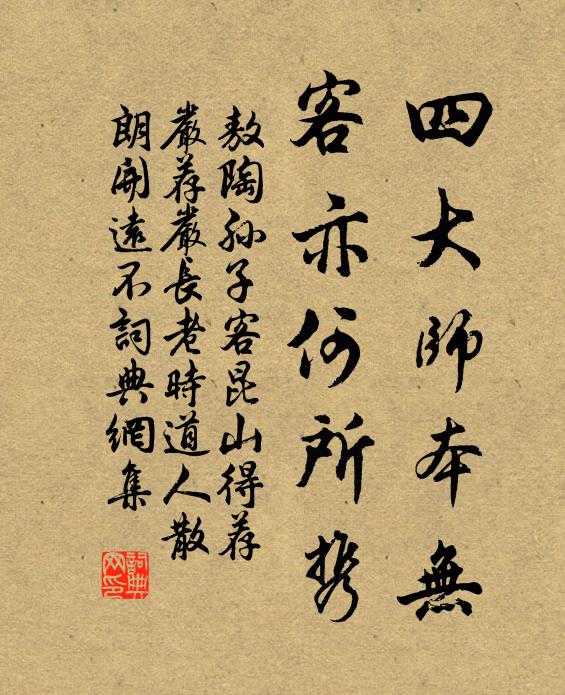 四大師本無
客亦何所携
敖陶孫子客昆山得荐
嚴荐嚴長老時道人散
朗開遠不詞典網集
詞典
网印